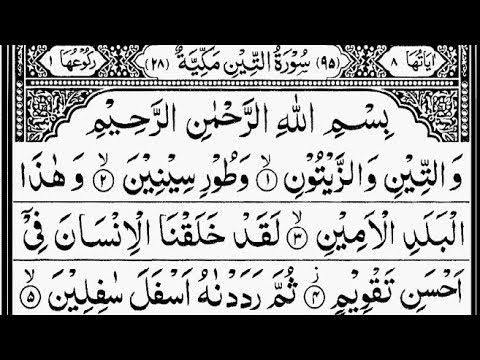 اٰيَاتُهَا ٨ (٩٥) سُوْرَةُ التِّيْنِ مَكِّيَّةٌ (٢٨) رُكُوْعُهَا ١
بِسْمِ اللهِ الرَّحْمٰنِ الرَّحِيْمِ
وَالتِّيْنِ وَالزَّيْتُوْنِ ۙ﴿١﴾ وَطُوْرِ سِيْنِيْنَ ۙ﴿٢﴾ وَهٰذَا
الْبَلَدِ الْاَمِيْنِ ۙ﴿٣﴾ لَقَدْ خَلَقْنَا الْاِنْسَانَ فِيْۤ
اَحْسَنِ تَقْوِيْمٍ ؗ﴿٤﴾ ثُمَّ رَدَدْنٰهُ اَسْفَلَ سٰفِلِيْنَ ۙ﴿٥﴾